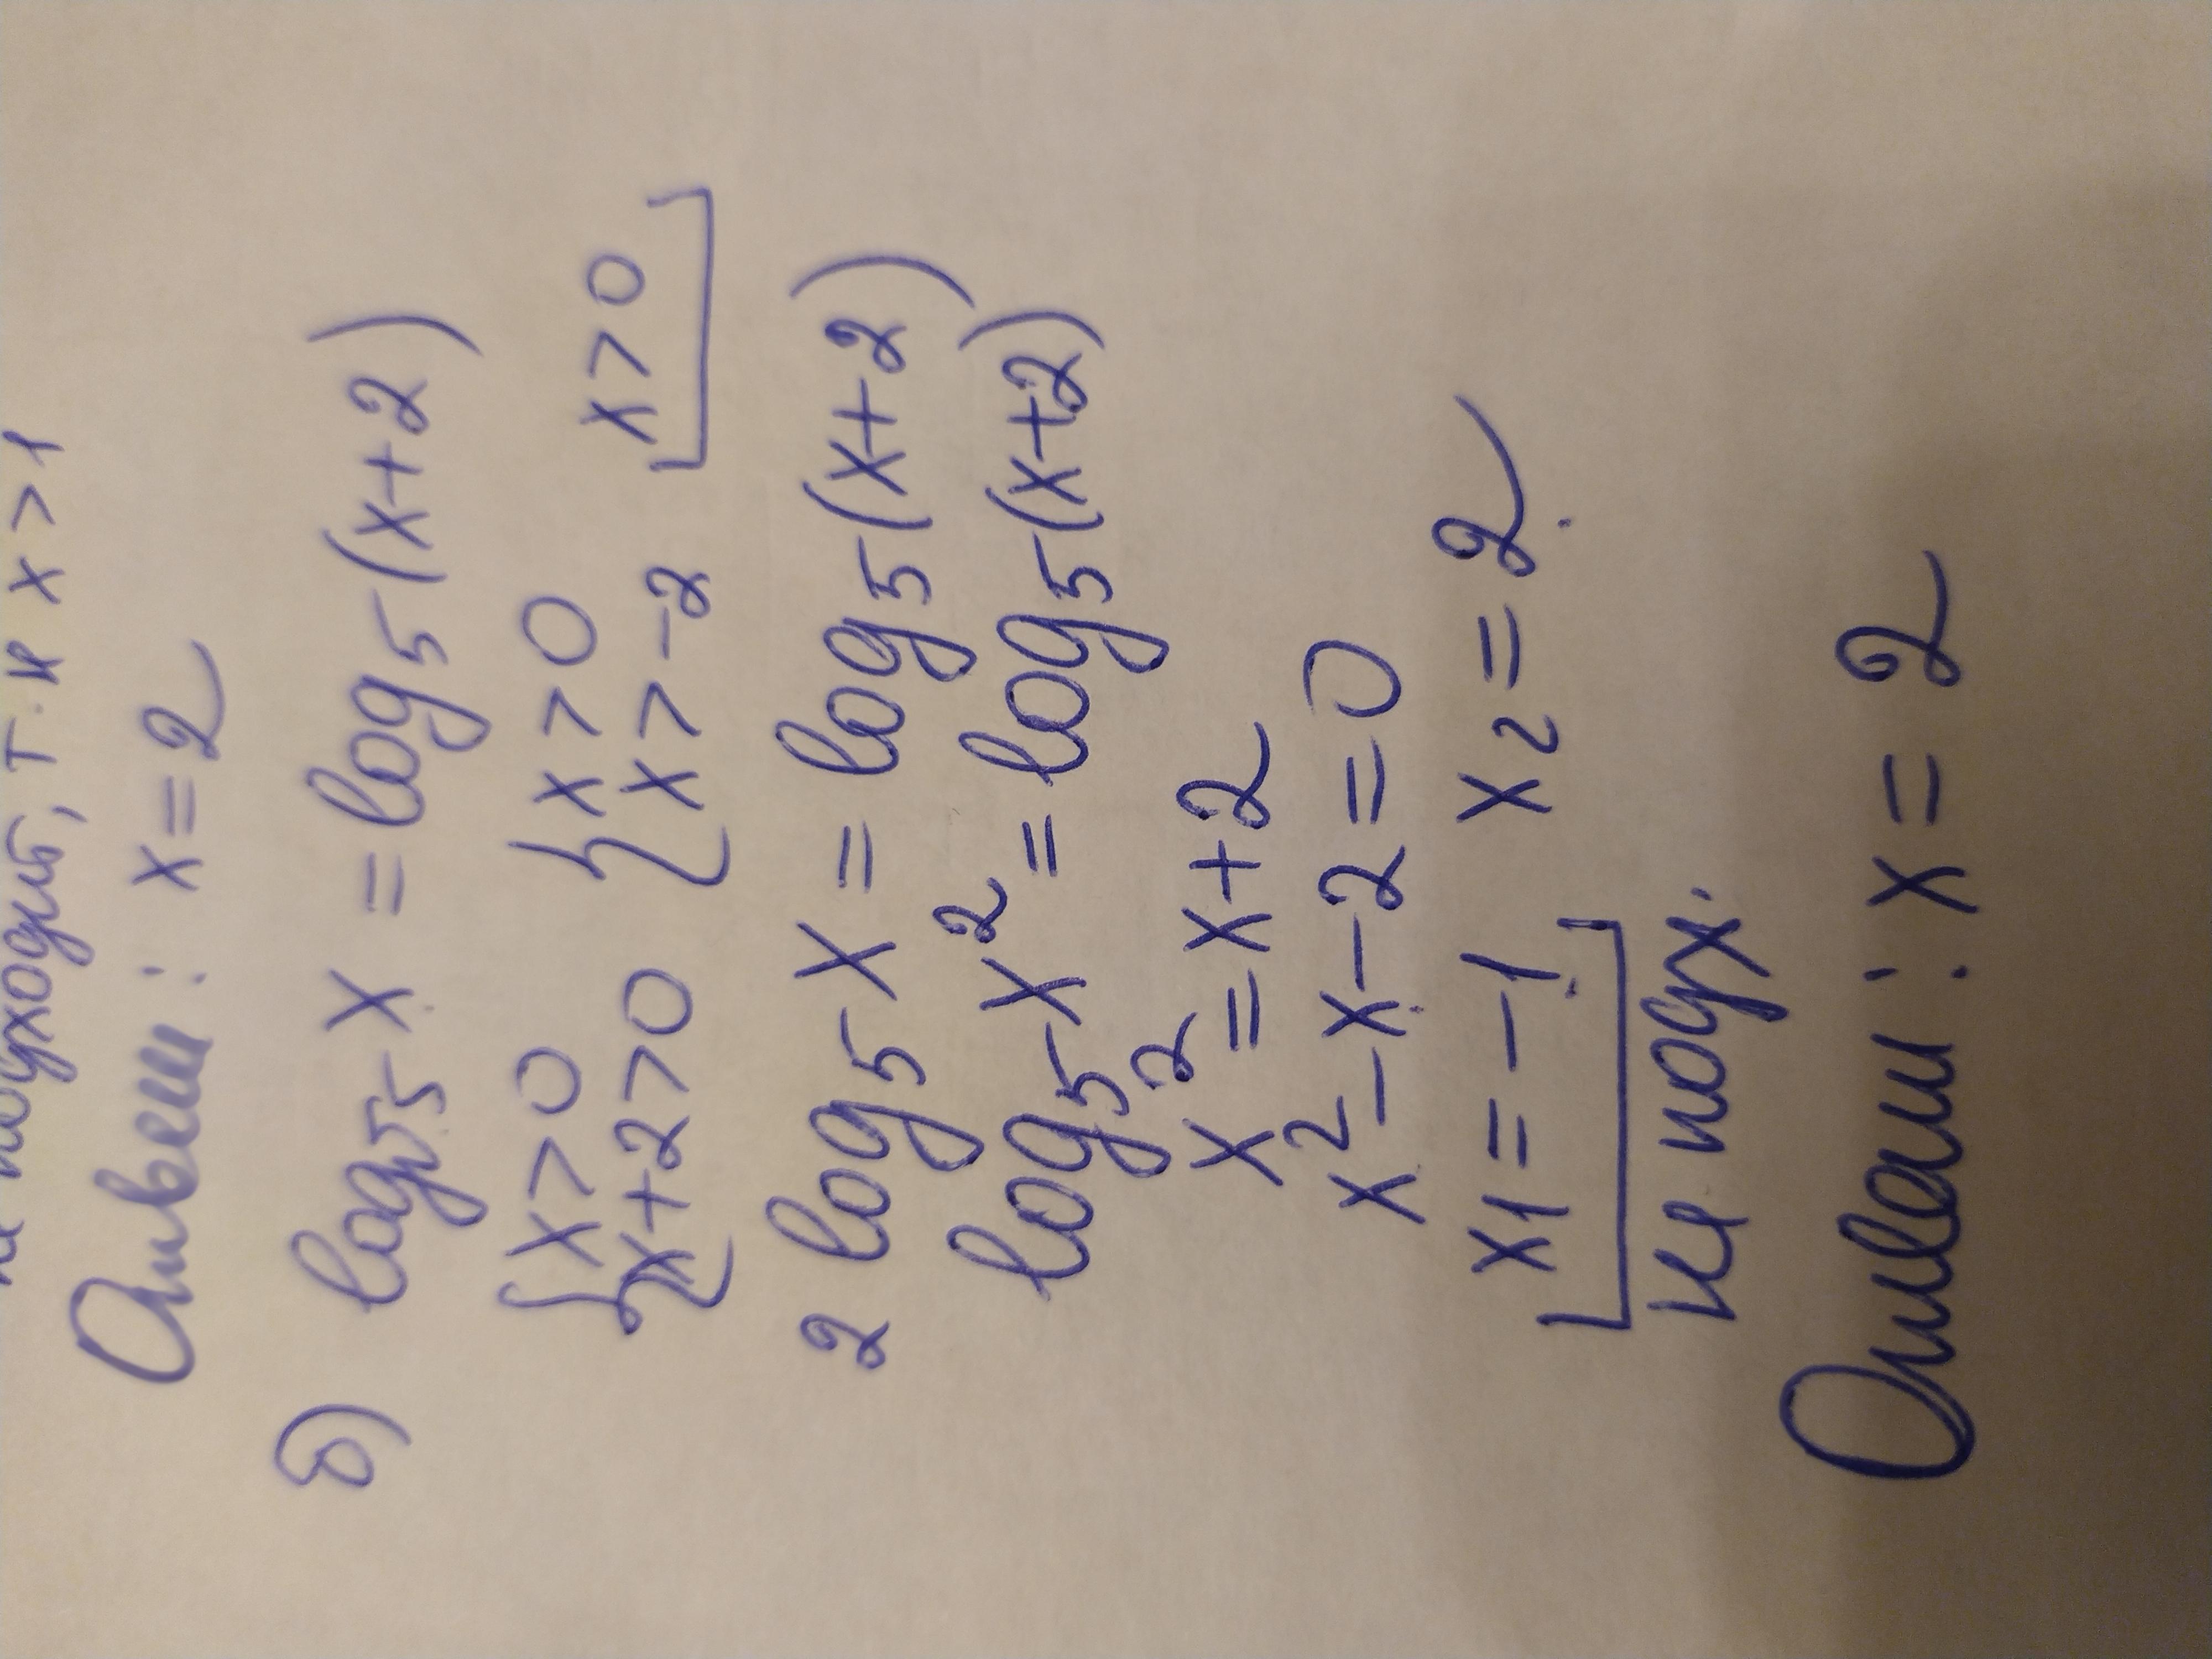 не подходит, т.к x > 1
Ответ: x = 2
б) log√5 x = log5 (x+2)
{x>0 {x>0 x>0
{x+2>0 {x>-2
2 log5 x = log5 (x+2)
log5 x² = log5 (x+2)
x² = x+2
x² - x - 2 = 0
x1 = -1 x2 = 2
не подх.
Ответ: x = 2